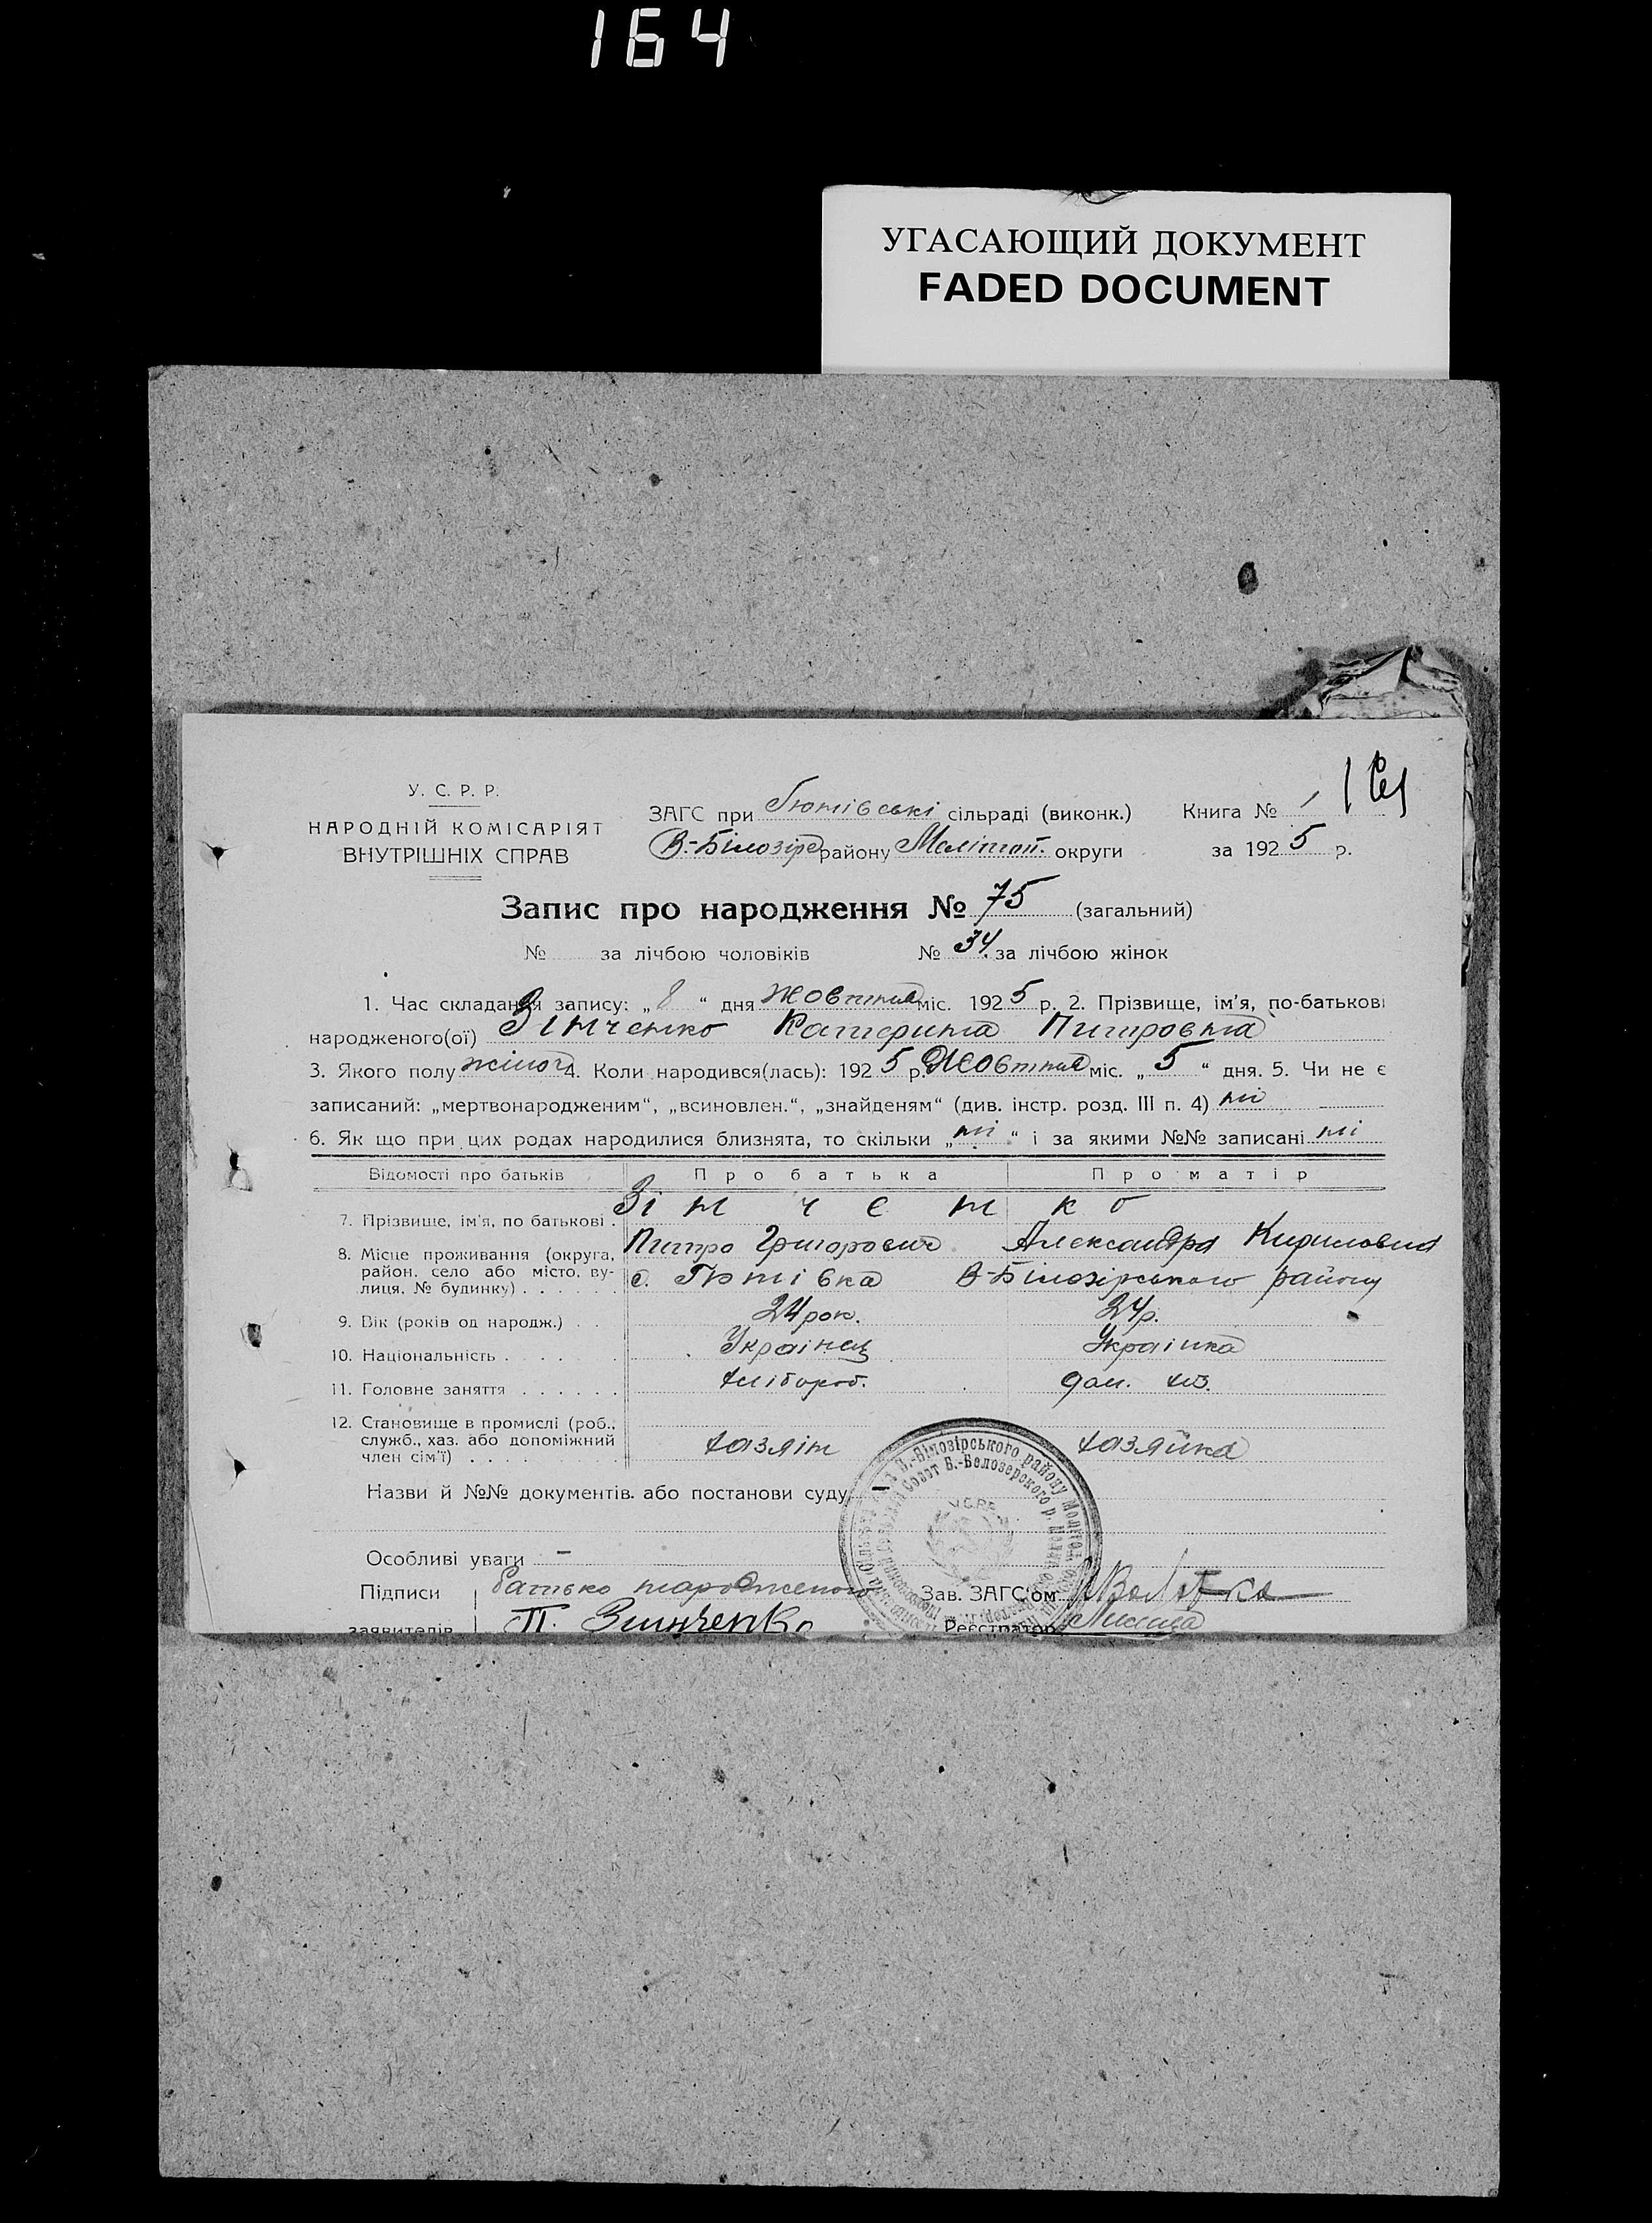 164
УГАСАЮЩИЙ ДОКУМЕНТ
FADED DOCUMENT
У. С. Р. Р.
НАРОДНІЙ КОМІСАРІЯТ
ВНУТРІШНІХ СПРАВ
ЗАГС при Гютівські сільраді (виконк.) Книга № 1
В.-Білозірс району Мелітоп. округи за 1925 р.
Запис про народження № 75 (загальний)
№ за лічбою чоловіків № 34. за лічбою жінок
1. Час складання запису: „8“ дня жовтня міс. 1925 р. 2. Прізвище, ім'я, по-батькові
народженого(ої) Зінченко Катерина Питровна
3. Якого полу жіноч 4. Коли народився(лась): 1925 р. Жовтня міс. „5“ дня. 5. Чи не є
записаний: „мертвонародженим“, „всиновлен.“, „знайденям“ (див. інстр. розд. III п. 4) ні
6. Як що при цих родах народилися близнята, то скільки „ні“ і за якими №№ записані ні
Відомості про батьків Про батька Про матір
7. Прізвище, ім'я, по батькові . Зінченко
Питро Григорович Александра Кириловна
8. Місце проживання (округа,
район, село або місто, ву-
лиця, № будинку) . . . . . . с. Гютівка В-Білозірського району
9. Вік (років од народж.) . . 24 рок. 24 р.
10. Національність . . . . . Українец Українка
11. Головне заняття . . . . . . хлібороб. дом. хоз.
12. Становище в промислі (роб.,
служб., хаз. або допоміжний
член сім'ї) . . . . хазяін хазяйка
Назви й №№ документів. або постанови суду
Особливі уваги –
Підписи Батько народженого Зав. ЗАГС'ом
заявителів П. Зинченко Реєстратор